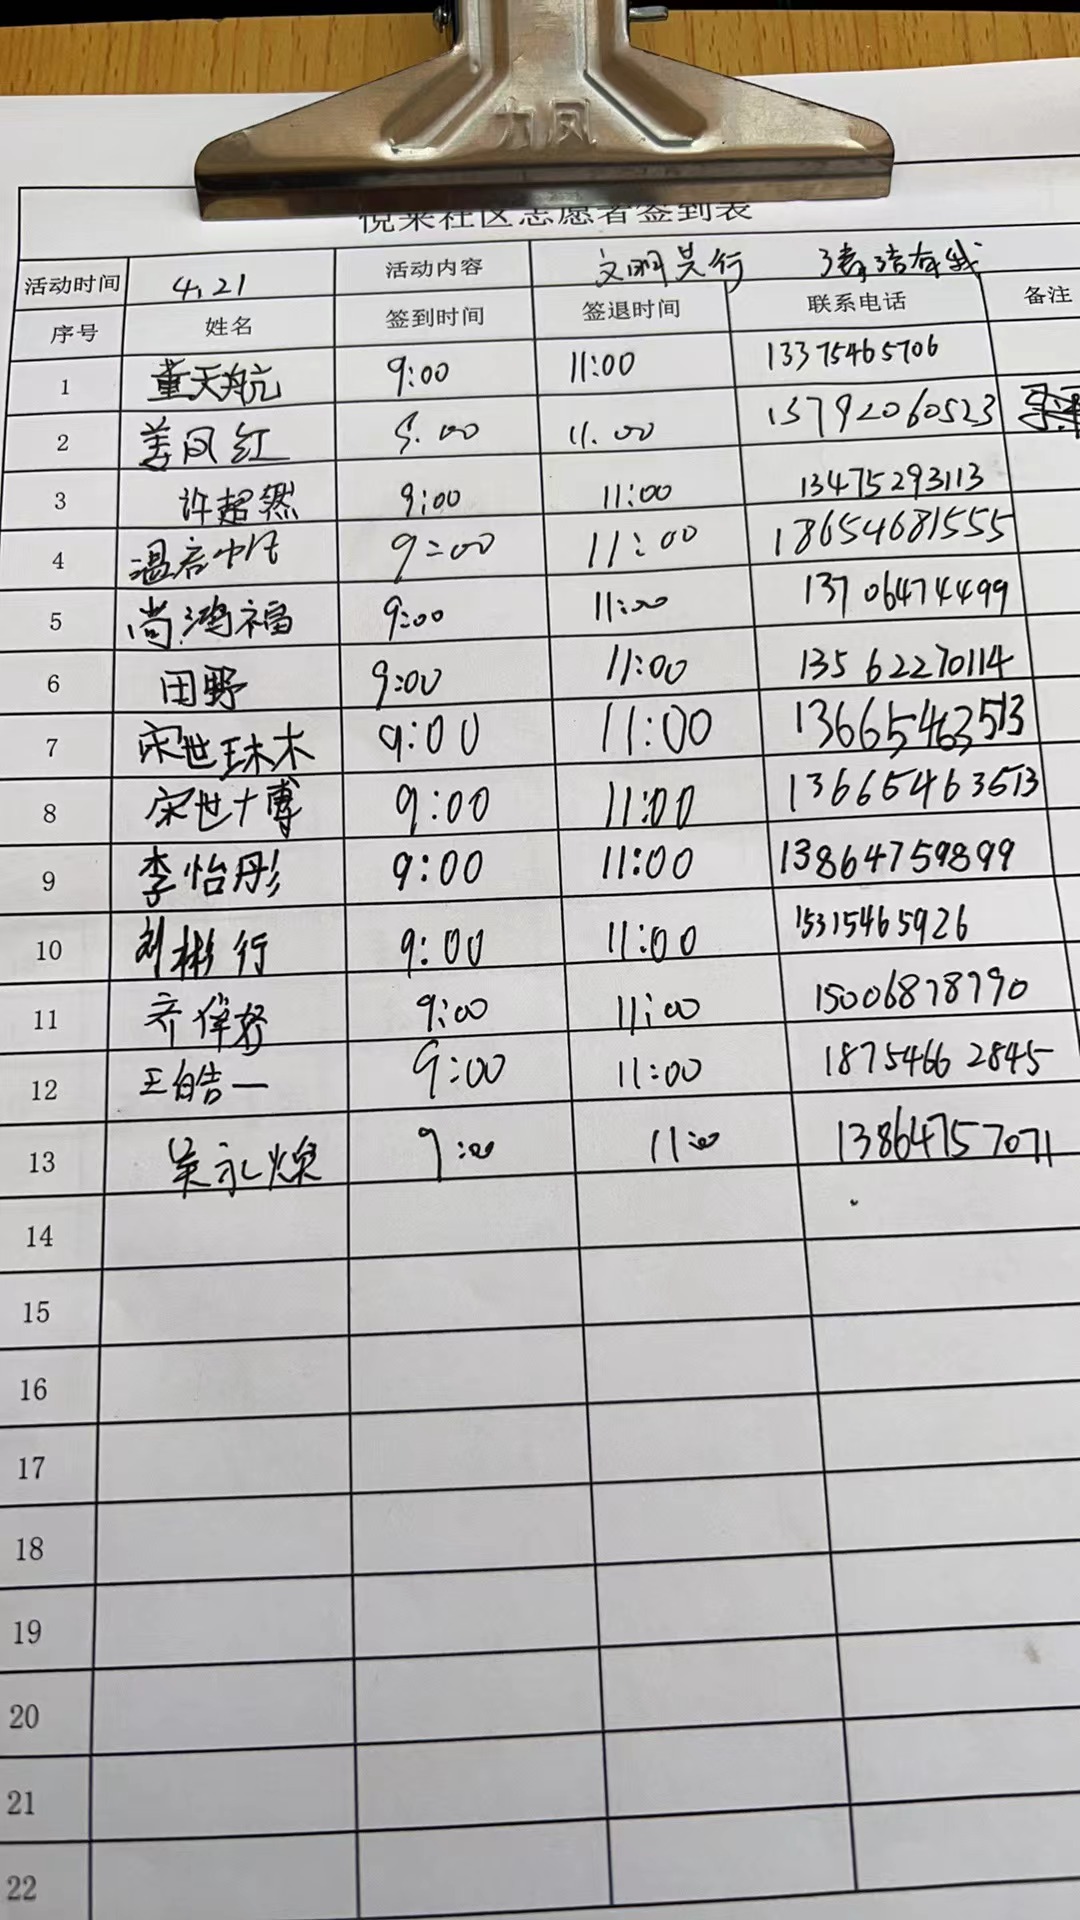 力凤
悦来社区志愿者签到表
活动时间 4.21 活动内容 文明共行 清洁有我
序号 姓名 签到时间 签退时间 联系电话 备注
1 董天航 9:00 11:00 13375465706
2 姜凤红 9.00 11.00 13792060523
3 许超然 9:00 11:00 13475293113
4 9:00 11:00 18654681555
5 尚鸿福 9:00 11:00 13706474499
6 田野 9:00 11:00 13562270114
7 宋世琳 9:00 11:00 13665463513
8 宋世博 9:00 11:00 13665463513
9 李怡彤 9:00 11:00 13864759899
10 刘彬行 9:00 11:00 15315465926
11 9:00 11:00 15006878790
12 王皓一 9:00 11:00 18754662845
13 吴永焕 9:00 11:00 13864757071
14
15
16
17
18
19
20
21
22